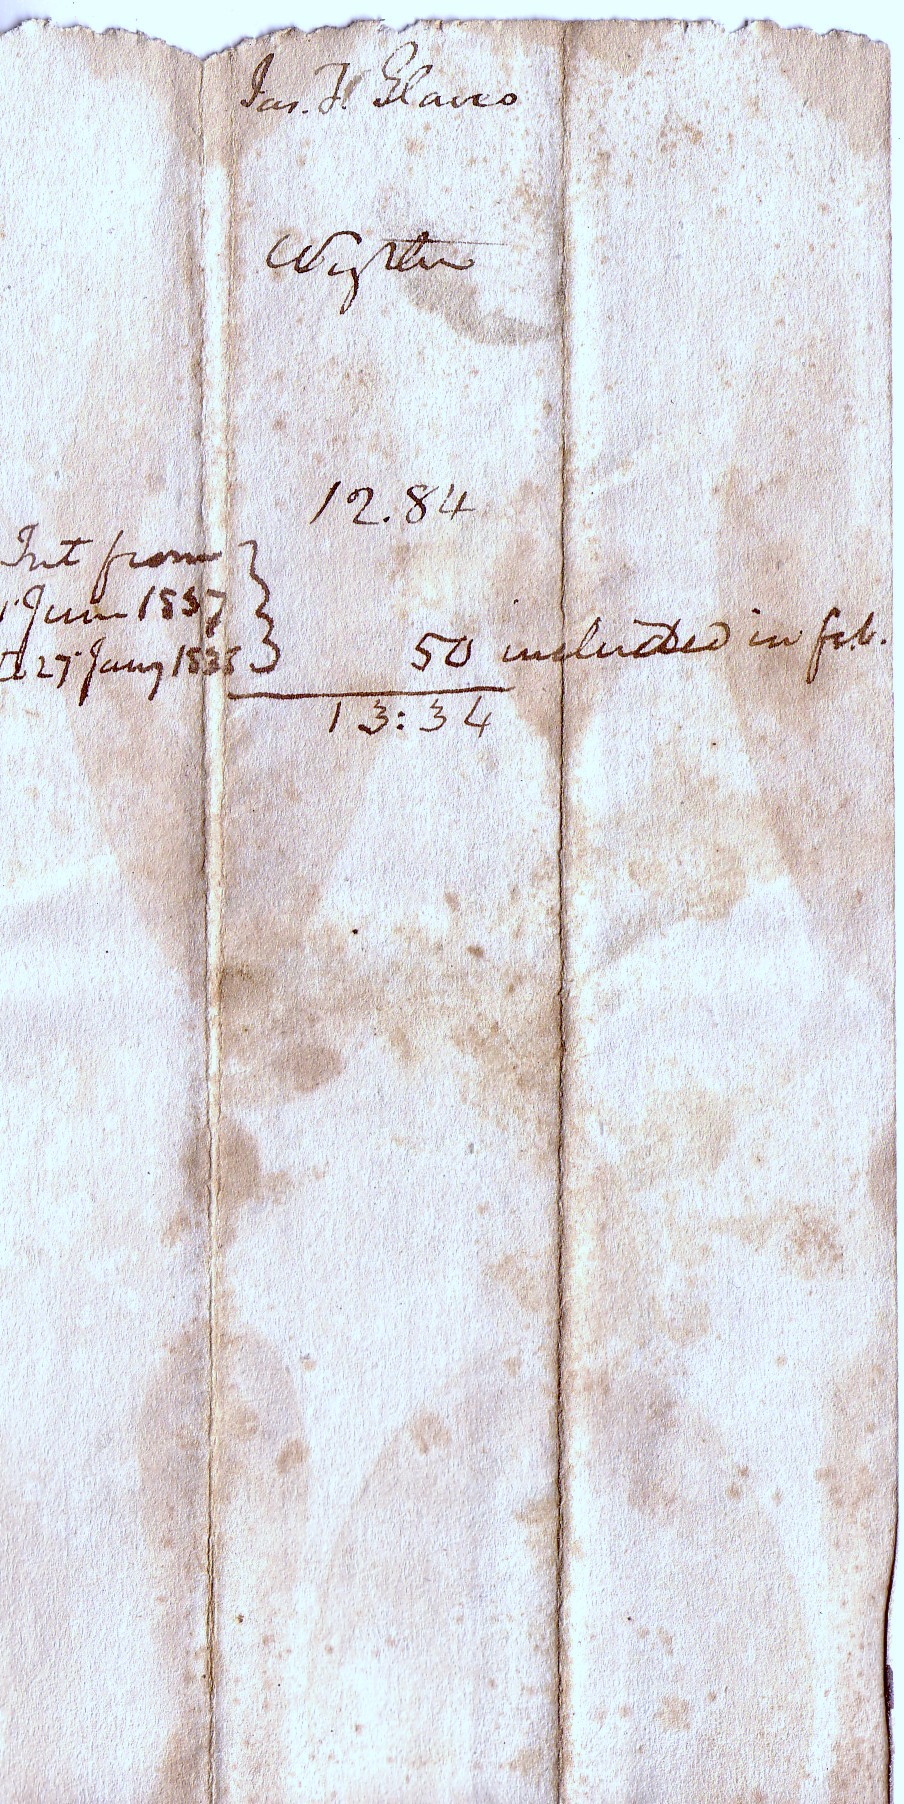 Jas. H Glaves
12.84
Int from
1 June 1837
to 27 Jany 1838 50 included in
13:34